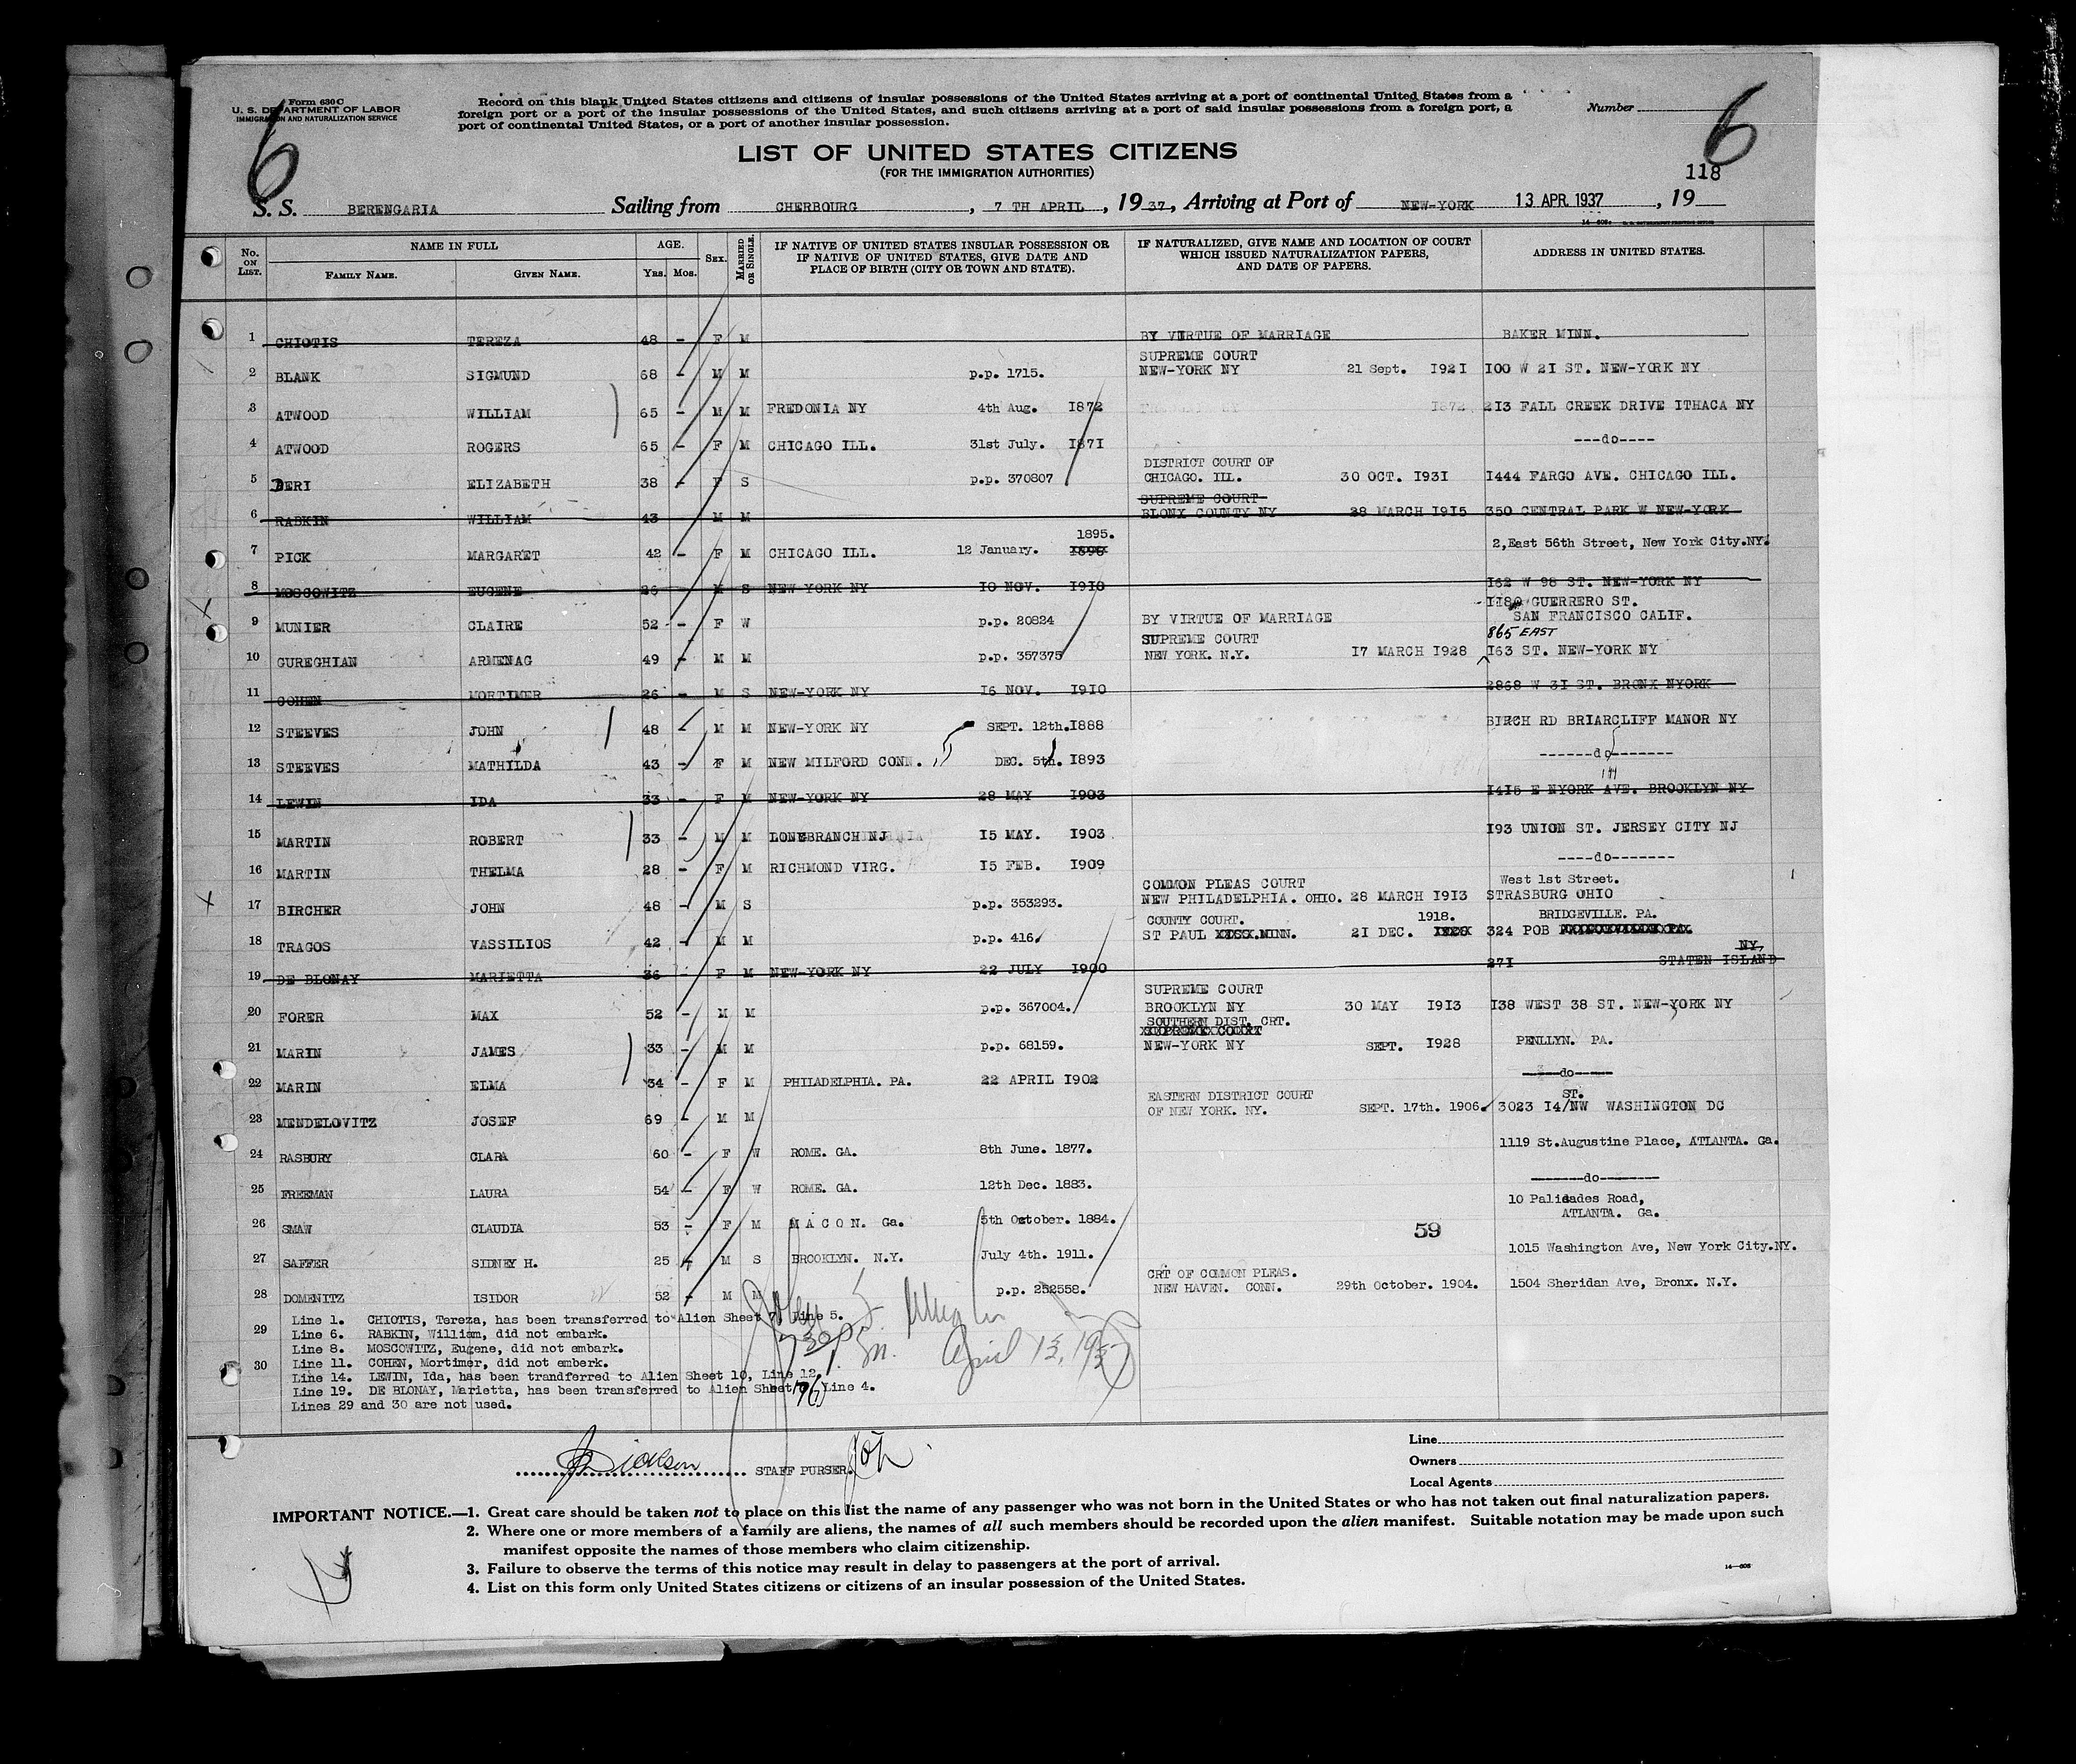 Form 630C
U. S. DEPARTMENT OF LABOR
IMMIGRATION AND NATURALIZATION SERVICE
6
Record on this blank United States citizens and citizens of insular possessions of the United States arriving at a port of continental United States from a
foreign port or a port of the insular possessions of the United States, and such citizens arriving at a port of said insular possessions from a foreign port, a
port of continental United States, or a port of another insular possession.
Number
6
LIST OF UNITED STATES CITIZENS
(FOR THE IMMIGRATION AUTHORITIES)
118
S. S. BERENGARIA Sailing from CHERBOURG, 7 TH APRIL, 19 37, Arriving at Port of NEW-YORK 13 APR. 1937, 19
No. ON LIST. NAME IN FULL FAMILY NAME. GIVEN NAME. AGE. Yrs. Mos. SEX. MARRIED OR SINGLE. IF NATIVE OF UNITED STATES INSULAR POSSESSION OR IF NATIVE OF UNITED STATES, GIVE DATE AND PLACE OF BIRTH (CITY OR TOWN AND STATE). IF NATURALIZED, GIVE NAME AND LOCATION OF COURT WHICH ISSUED NATURALIZATION PAPERS, AND DATE OF PAPERS. ADDRESS IN UNITED STATES.
1 CHIOTIS TEREZA 48 - F M BY VIRTUE OF MARRIAGE BAKER MINN.
SUPREME COURT
2 BLANK SIGMUND 68 - M M p.p. 1715. NEW-YORK NY 21 Sept. 1921 100 W 21 ST. NEW-YORK NY
3 ATWOOD WILLIAM 65 - M M FREDONIA NY 4th Aug. 1872 213 FALL CREEK DRIVE ITHACA NY
4 ATWOOD ROGERS 65 - F M CHICAGO ILL. 31st July. 1871 ---do----
DISTRICT COURT OF
5 BERI ELIZABETH 38 - F S p.p. 370807 CHICAGO. ILL. 30 OCT. 1931 1444 FARGO AVE. CHICAGO ILL.
SUPREME COURT
6 RABKIN WILLIAM 43 - M M BLONX COUNTY NY 28 MARCH 1915 350 CENTRAL PARK W NEW-YORK
1895.
7 PICK MARGARET 42 - F M CHICAGO ILL. 12 January. 2,East 56th Street, New York City.NY.
8 MOSCOWITZ EUGENE 26 - M S NEW-YORK NY 10 NOV. 1910 162 W 98 ST. NEW-YORK NY
1180 GUERRERO ST.
9 MUNIER CLAIRE 52 - F W p.p. 20824 BY VIRTUE OF MARRIAGE SAN FRANCISCO CALIF.
SUPREME COURT 865 EAST
10 GUREGHIAN ARMENAG 49 - M M p.p. 357375 NEW YORK. N.Y. 17 MARCH 1928 163 ST. NEW-YORK NY
11 COHEN MORTIMER 26 - M S NEW-YORK NY 16 NOV. 1910 2868 W 31 ST. BRONX NYORK
12 STEEVES JOHN 48 - M M NEW-YORK NY SEPT. 12th.1888 BIRCH RD BRIARCLIFF MANOR NY
13 STEEVES MATHILDA 43 - F M NEW MILFORD CONN. DEC. 5th. 1893 ------do-------
14 LEWIN IDA 33 - F M NEW-YORK NY 28 MAY 1903 1415 E NYORK AVE. BROOKLYN NY
15 MARTIN ROBERT 33 - M M LONGBRANCH NJ 15 MAY. 1903 193 UNION ST. JERSEY CITY NJ
16 MARTIN THELMA 28 - F M RICHMOND VIRG. 15 FEB. 1909 ----do-------
COMMON PLEAS COURT West 1st Street.
17 BIRCHER JOHN 48 - M S p.p. 353293. NEW PHILADELPHIA. OHIO. 28 MARCH 1913 STRASBURG OHIO
COUNTY COURT. 1918. BRIDGEVILLE. PA.
18 TRAGOS VASSILIOS 42 - M M p.p. 416. ST PAUL MINN. 21 DEC. 324 POB
NY,
19 DE BLONAY MARIETTA 36 - F M NEW-YORK NY 22 JULY 1900 271 STATEN ISLAND
SUPREME COURT
20 FORER MAX 52 - M M p.p. 367004. BROOKLYN NY 30 MAY 1913 138 WEST 38 ST. NEW-YORK NY
SOUTHERN DIST. CRT.
SUPREME COURT
21 MARIN JAMES 33 - M M p.p. 68159. NEW-YORK NY SEPT. 1928 PENLLYN. PA.
22 MARIN ELMA 34 - F M PHILADELPHIA. PA. 22 APRIL 1902 -----do-----
EASTERN DISTRICT COURT ST.
23 MENDELOVITZ JOSEF 69 - M M OF NEW YORK. NY. SEPT. 17th. 1906. 3023 14/NW WASHINGTON DC
24 RASBURY CLARA 60 - F W ROME. GA. 8th June. 1877. 1119 St.Augustine Place, ATLANTA. Ga.
25 FREEMAN LAURA 54 - F W ROME. GA. 12th Dec. 1883. --------do--------
10 Palisades Road,
26 SMAW CLAUDIA 53 - F M M A C O N. Ga. 5th October. 1884. ATLANTA. Ga.
59
27 SAFFER SIDNEY H. 25 - M S BROOKLYN. N.Y. July 4th. 1911. 1015 Washington Ave, New York City.NY.
CRT OF COMMON PLEAS.
28 DOMENITZ ISIDOR 52 - M M p.p. 252558. NEW HAVEN. CONN. 29th October. 1904. 1504 Sheridan Ave, Bronx. N.Y.
Line 1. CHIOTIS, Tereza, has been transferred to Alien Sheet 7, Line 5.
29
Line 6. RABKIN, William, did not embark.
Line 8. MOSCOWITZ, Eugene, did not embark.
30
Line 11. COHEN, Mortimer, did not emberk.
Line 14. LEWIN, Ida, has been trandferred to Alien Sheet 10, Line 12.
Line 19. DE BLONAY, Marietta, has been transferred to Alien Sheet Line 4.
Lines 29 and 30 are not used.
April 13, 1937
STAFF PURSER.
Line
Owners
Local Agents
IMPORTANT NOTICE.—1. Great care should be taken not to place on this list the name of any passenger who was not born in the United States or who has not taken out final naturalization papers.
2. Where one or more members of a family are aliens, the names of all such members should be recorded upon the alien manifest. Suitable notation may be made upon such
manifest opposite the names of those members who claim citizenship.
3. Failure to observe the terms of this notice may result in delay to passengers at the port of arrival.
4. List on this form only United States citizens or citizens of an insular possession of the United States.